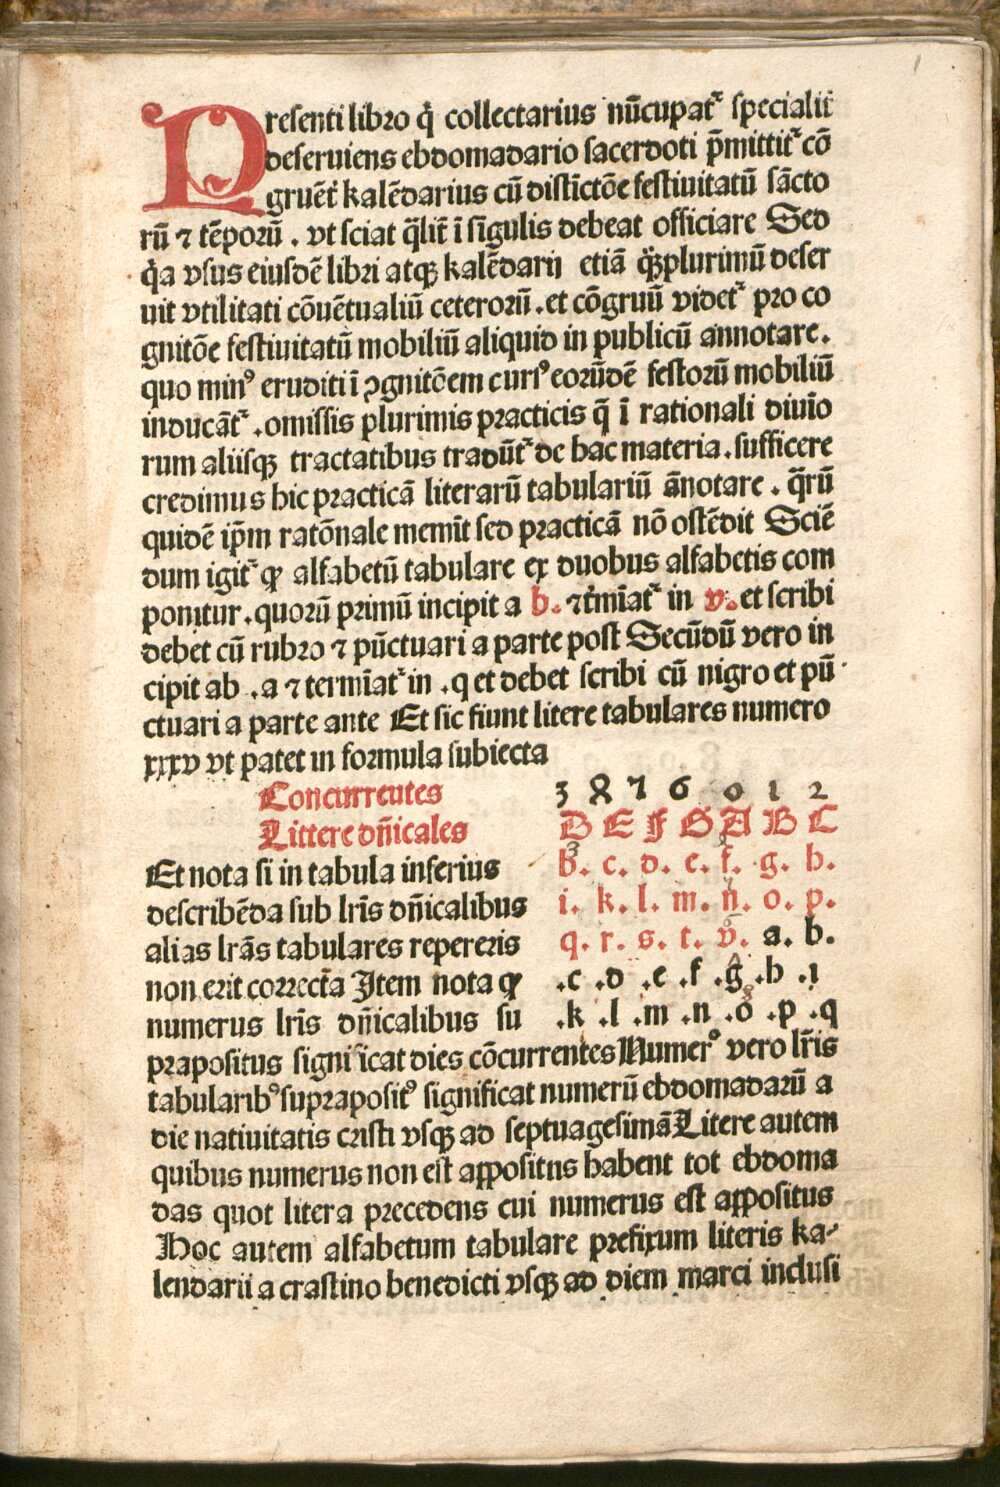 1
Presenti libro q̇ collectarius nūcupatˀ specialit̄
deseruiens ebdomadario sacerdoti p̄mittitˀ cō
gruēt̄ kalēdarius cū distīctōe festiuitatū sācto
rū ⁊ tēporū . vt sciat q̄lit̄ ī sīgulis debeat officiare Sed
q̇a vsus eiusdē libri atqꝫ kalēdarij etiā qꝫplurimū deser
uit vtilitati cōuētualiū ceterorū . et cōgruū videtˀ pro co
gnitōe festiuitatū mobiliū aliquid in publicū annotare .
quo minꝰ eruditi ī ꝯgnitōem cursꝰ eorūdē festorū mobiliū
inducātˀ . omissis plurimis practicis q̄ ī rationali diuīo
rum aliisqꝫ tractatibus tradūtˀ de hac materia . sufficere
credimus hic practicā literarū tabulariū ānotare . q̄rū
quidē ip̄m ratōnale memīt sed practicā nō ostēdit Sciē
dum igitˀ ꝙ alfabetū tabulare ex duobus alfabetis com
ponitur . quorū primū incipit a b. ⁊t̄mīatˀ in v. et scribi
debet cū rubro ⁊ pūctuari a parte post Secūdū vero in
cipit ab .a ⁊ termīatˀ in .q et debet scribi cū nigro et pū
ctuari a parte ante Et sic fiunt litere tabulares numero
xxxv vt patet in formula subiecta
Concurrentes 3 8 7 6 0 1 2
Littere dn̄icales D E F G A B C
Et nota si in tabula inferius b. c. d. e. f. g. h.
describēda sub lr̄is dn̄icalibus i. k. l. m. n. o. p.
alias lr̄as tabulares repereris q. r. s. t. v. a. b.
non erit correcta Item nota ꝙ .c .d .e .f .g .h .i
numerus lr̄is dn̄icalibus su .k .l .m .n .o .p .q
prapositus significat dies cōcurrentes Numerꝰ vero lr̄is
tabularibꝰ supraposit̄ꝰ significat numerū ebdomadarū a
die nativitatis cristi vsqꝫ ad septuagesimā Litere autem
quibus numerus non est appositus habent tot ebdoma
das quot litera precedens cui numerus est appositus
Hoc autem alfabetum tabulare prefixum literis ka-
lendarii a crastino benedicti vsqꝫ ad diem marci inclusi